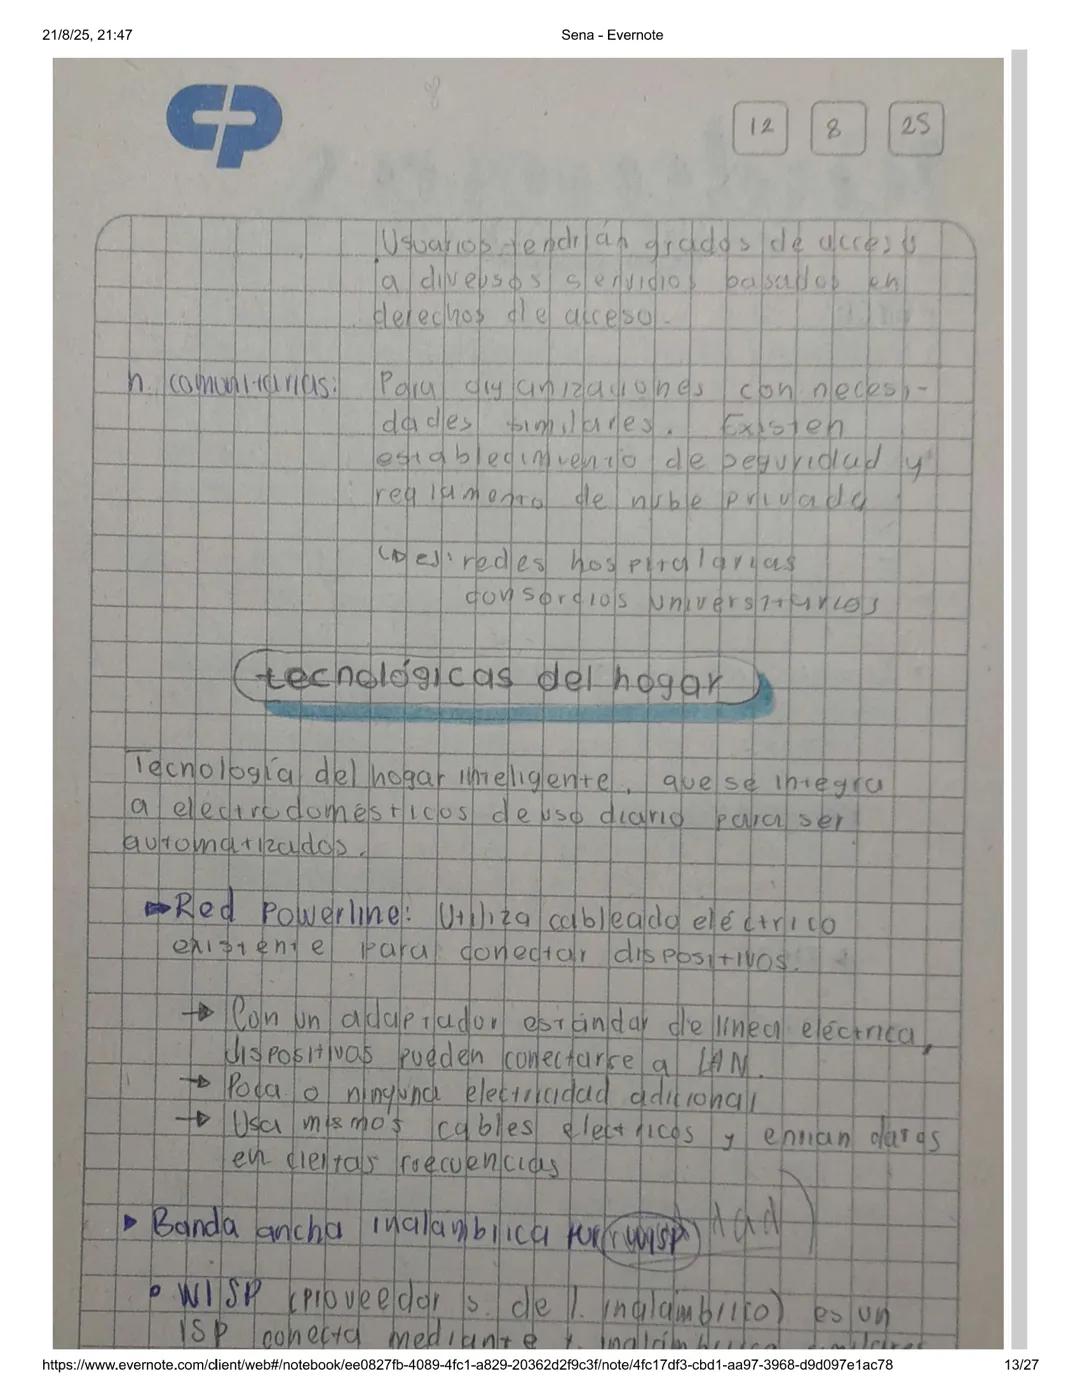 21/8/25, 21:47
Sena - Evernote
12 8 25
Usuarios tendrían grados de acceso
a diversos servidios basados en
derechos de acceso.
n. comunitarias: Para organizaciones con necesi-
dades similares. Existen
establecimiento de seguridad y
reglamento de nube privada
ej: redes hospitalarias
consorcios universitarios
tecnológicas del hogar
Tecnología del hogar inteligente, que se integra
a electrodomésticos de uso diario para ser
automatizados.
Red Powerline: Utiliza cableado eléctrico
existente para conectar dispositivos.
→ Con un adaptador estándar de linea eléctrica,
dispositivas pueden conectarse a LAN.
→ Poca o ninguna electricidad adicional
→ Usa mismos cables eléctricos y envian datos
en ciertas frecuencias
Banda ancha inalambrica por wisp
• WISP (proveedor s. de I. inalámbrico) es un
ISP conecta mediante
https://www.evernote.com/client/web#/notebook/ee0827fb-4089-4fc1-a829-20362d2f9c3f/note/4fc17df3-cbd1-aa97-3968-d9d097e1ac78
13/27